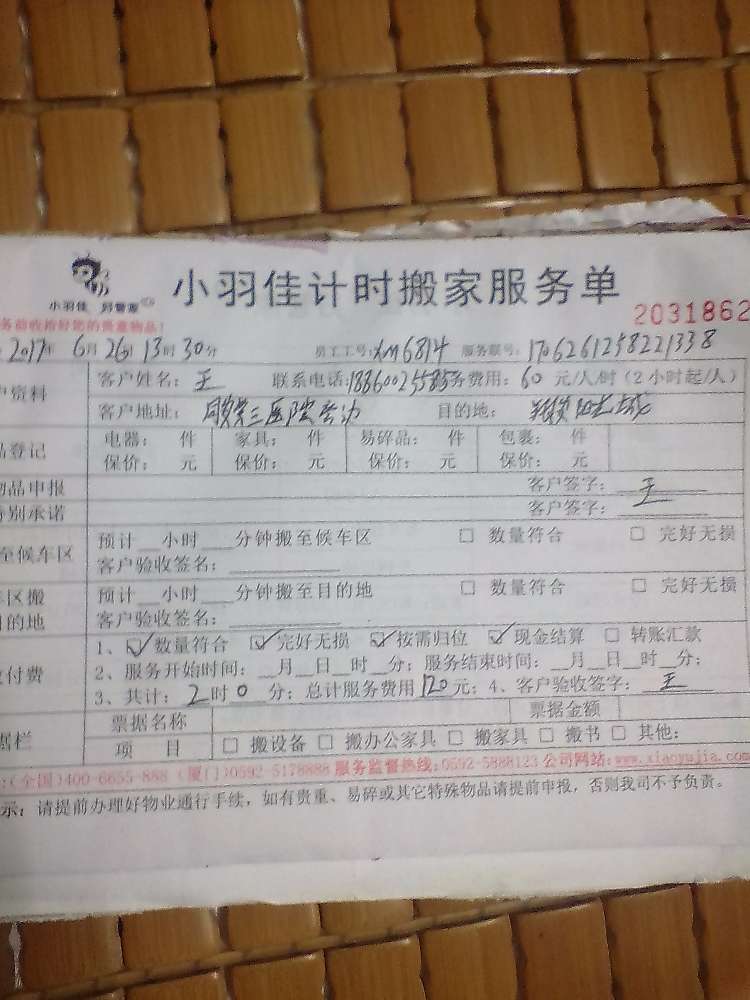 小羽佳 好管家
小羽佳计时搬家服务单
务前收拾好您的贵重物品!
2031862
2017年 6月 26日 13时 30分 员工工号:xm6814 服务联号:1706261258221338
户资料 客户姓名: 王 联系电话:18860025585 务费用: 60 元/人/时 (2小时起/人)
客户地址: 同安第三医院旁边 目的地: 阳光城
品登记 电器: 件 家具: 件 易碎品: 件 包裹: 件
保价: 元 保价: 元 保价: 元 保价: 元
物品申报 客户签字: 王
特别承诺 客户签字: 王
至候车区 预计__小时__分钟搬至候车区 □ 数量符合 □ 完好无损
客户验收签名:
车区搬 预计__小时__分钟搬至目的地 □ 数量符合 □ 完好无损
目的地 客户验收签名:
1、☑数量符合 ☑完好无损 ☑按需归位 ☑现金结算 □ 转账汇款
付费 2、服务开始时间: __月__日__时__分; 服务结束时间: __月__日__时__分;
3、共计: 2时0分; 总计服务费用120元; 4、客户验收签字: 王
票据名称 票据金额
据栏 项 目 □ 搬设备 □ 搬办公家具 □ 搬家具 □ 搬书 □ 其他:
:(全国)400-6655-888 (厦门)0592-5178888 服务监督热线:0592-5888123 公司网站:www.xiaoyujia.com
示: 请提前办理好物业通行手续, 如有贵重、易碎或其它特殊物品请提前申报, 否则我司不予负责。